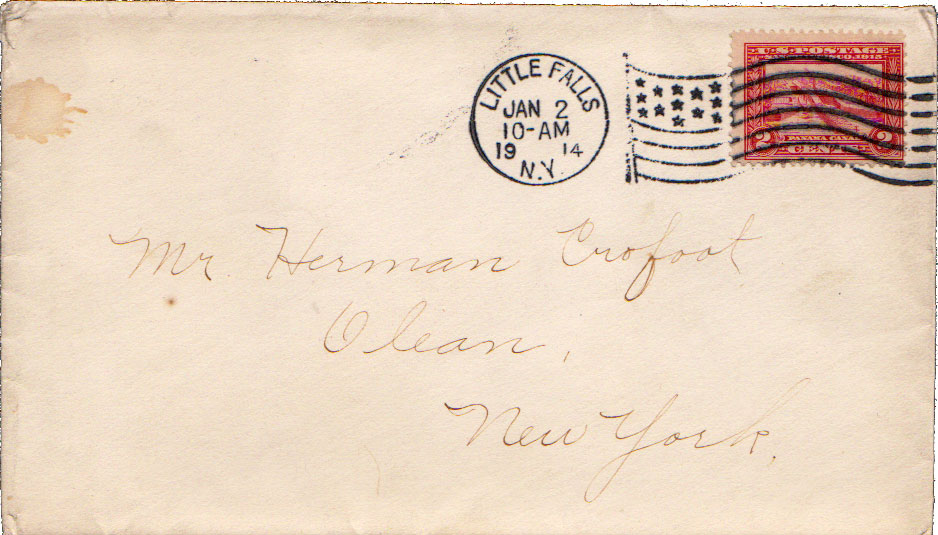 LITTLE FALLS
JAN 2
10-AM
19 14
N.Y.
U.S. POSTAGE
2 PANAMA CANAL 2
Mr. Herman Crofoot
Olean,
New York.